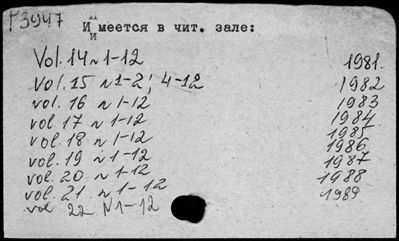 Р3947
Имеется в чит. зале:
Vol. 14 N 1-12 1981.
Vol. 15 N 1-2; 4-12 1982
vol. 16 N 1-12 1983
vol 17 N 1-12 1984
vol. 18 N 1-12 1985
vol. 19 N 1-12 1986
vol. 20 N 1-12 1987
vol. 21 N 1-12 1988
vol 22 N 1-12 1989